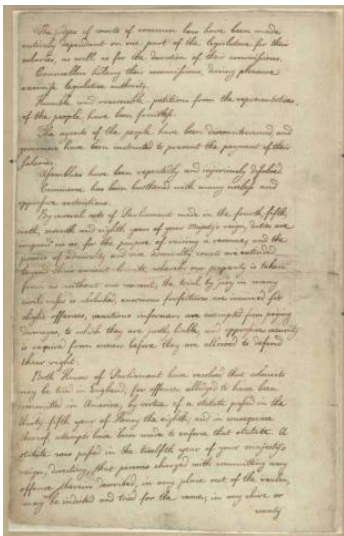 The Judges of courts of common law have been made
entirely dependant on one part of the legislature for their
salaries, as well as for the duration of their commissions.
Councillors holding their commissions, during pleasure
exercise legislative authority.
Humble and reasonable petitions from the representatives
of the people have been fruitless.
The agents of the people have been discountenanced, and
governors have been instructed to prevent the payment of their
salaries.
Assemblies have been repeatedly and injuriously dissolved.
Commerce has been burthened with many useless and
oppressive restrictions.
By several acts of Parliament made in the fourth, fifth,
sixth, seventh and eighth years of your Majesty's reign, duties are
imposed on us, for the purpose of raising a revenue, and the
powers of admiralty and vice admiralty courts are extended
beyond their ancient limits, whereby our property is taken
from us without our consent, the trial by jury in many
civil cases is abolished, enormous forfeitures are incurred for
slight offences, vexatious informers are exempted from paying
damages, to which they are justly liable, and oppressive security
is required from owners before they are allowed to defend
their right.
Both Houses of Parliament have resolved that colonists
may be tried in England, for offences alledged to have been
committed in America, by virtue of a statute passed in the
thirty fifth year of Henry the eighth; and in consequence
thereof, attempts have been made to enforce that statute. A
statute was passed in the twelfth year of your majesty's
reign, directing, that persons charged with committing any
offence therein described, in any place out of the realm,
may be indicted and tried for the same, in any shire or
county